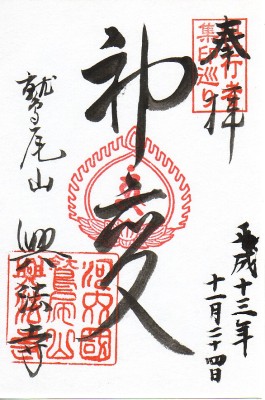 奉拝
集印巡り
神変
平成十三年
十一月二十四日
鷲尾山
興法寺
河内國
鷲尾山
興法寺